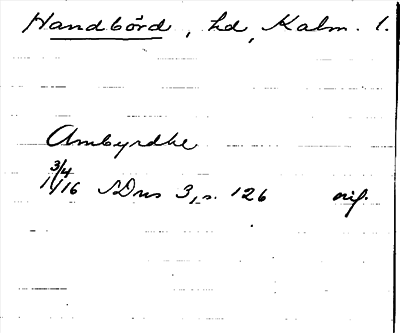 Handbörd, hd, Kalm. l.
Ambyrdhe
3/4 1416 SDns 3, s. 126 orig.